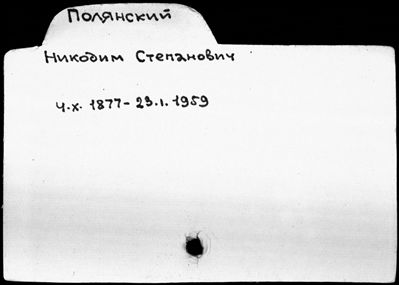 Полянский
Никодим Степанович
4.х.1877-23.1.1959